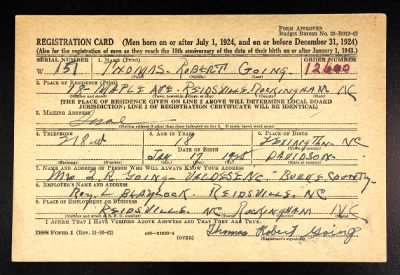 FORM APPROVED
Budget Bureau No. 33-R012-42
REGISTRATION CARD (Men born on or after July 1, 1924, and on or before December 31, 1924)
(Also for the registration of men as they reach the 18th anniversary of the date of their birth on or after January 1, 1943.)
SERIAL NUMBER 1. NAME (Print) ORDER NUMBER
W 151 THOMAS ROBERT GOING 12600
2. PLACE OF RESIDENCE (Print)
MAPLE AVE- REIDSVILLE, ROCKINGHAM NC
[THE PLACE OF RESIDENCE GIVEN ON LINE 2 ABOVE WILL DETERMINE LOCAL BOARD
JURISDICTION; LINE 2 OF REGISTRATION CERTIFICATE WILL BE IDENTICAL]
3. MAILING ADDRESS
Same
4. TELEPHONE 5. AGE IN YEARS 6. PLACE OF BIRTH
18 LEXINGTON NC
DATE OF BIRTH
JAN 17 DAVIDSON
7. NAME AND ADDRESS OF PERSON WHO WILL ALWAYS KNOW YOUR ADDRESS
Mrs GOING- VALDESE NC- BURKE COUNTY
8. EMPLOYER'S NAME AND ADDRESS
BLAYLOCK- REIDSVILLE, NC
9. PLACE OF EMPLOYMENT OR BUSINESS
REIDSVILLE NC ROCKINGHAM NC
I AFFIRM THAT I HAVE VERIFIED ABOVE ANSWERS AND THAT THEY ARE TRUE.
DSS Form 1 (Rev. 11-16-42) (OVER) Thomas Robert Going